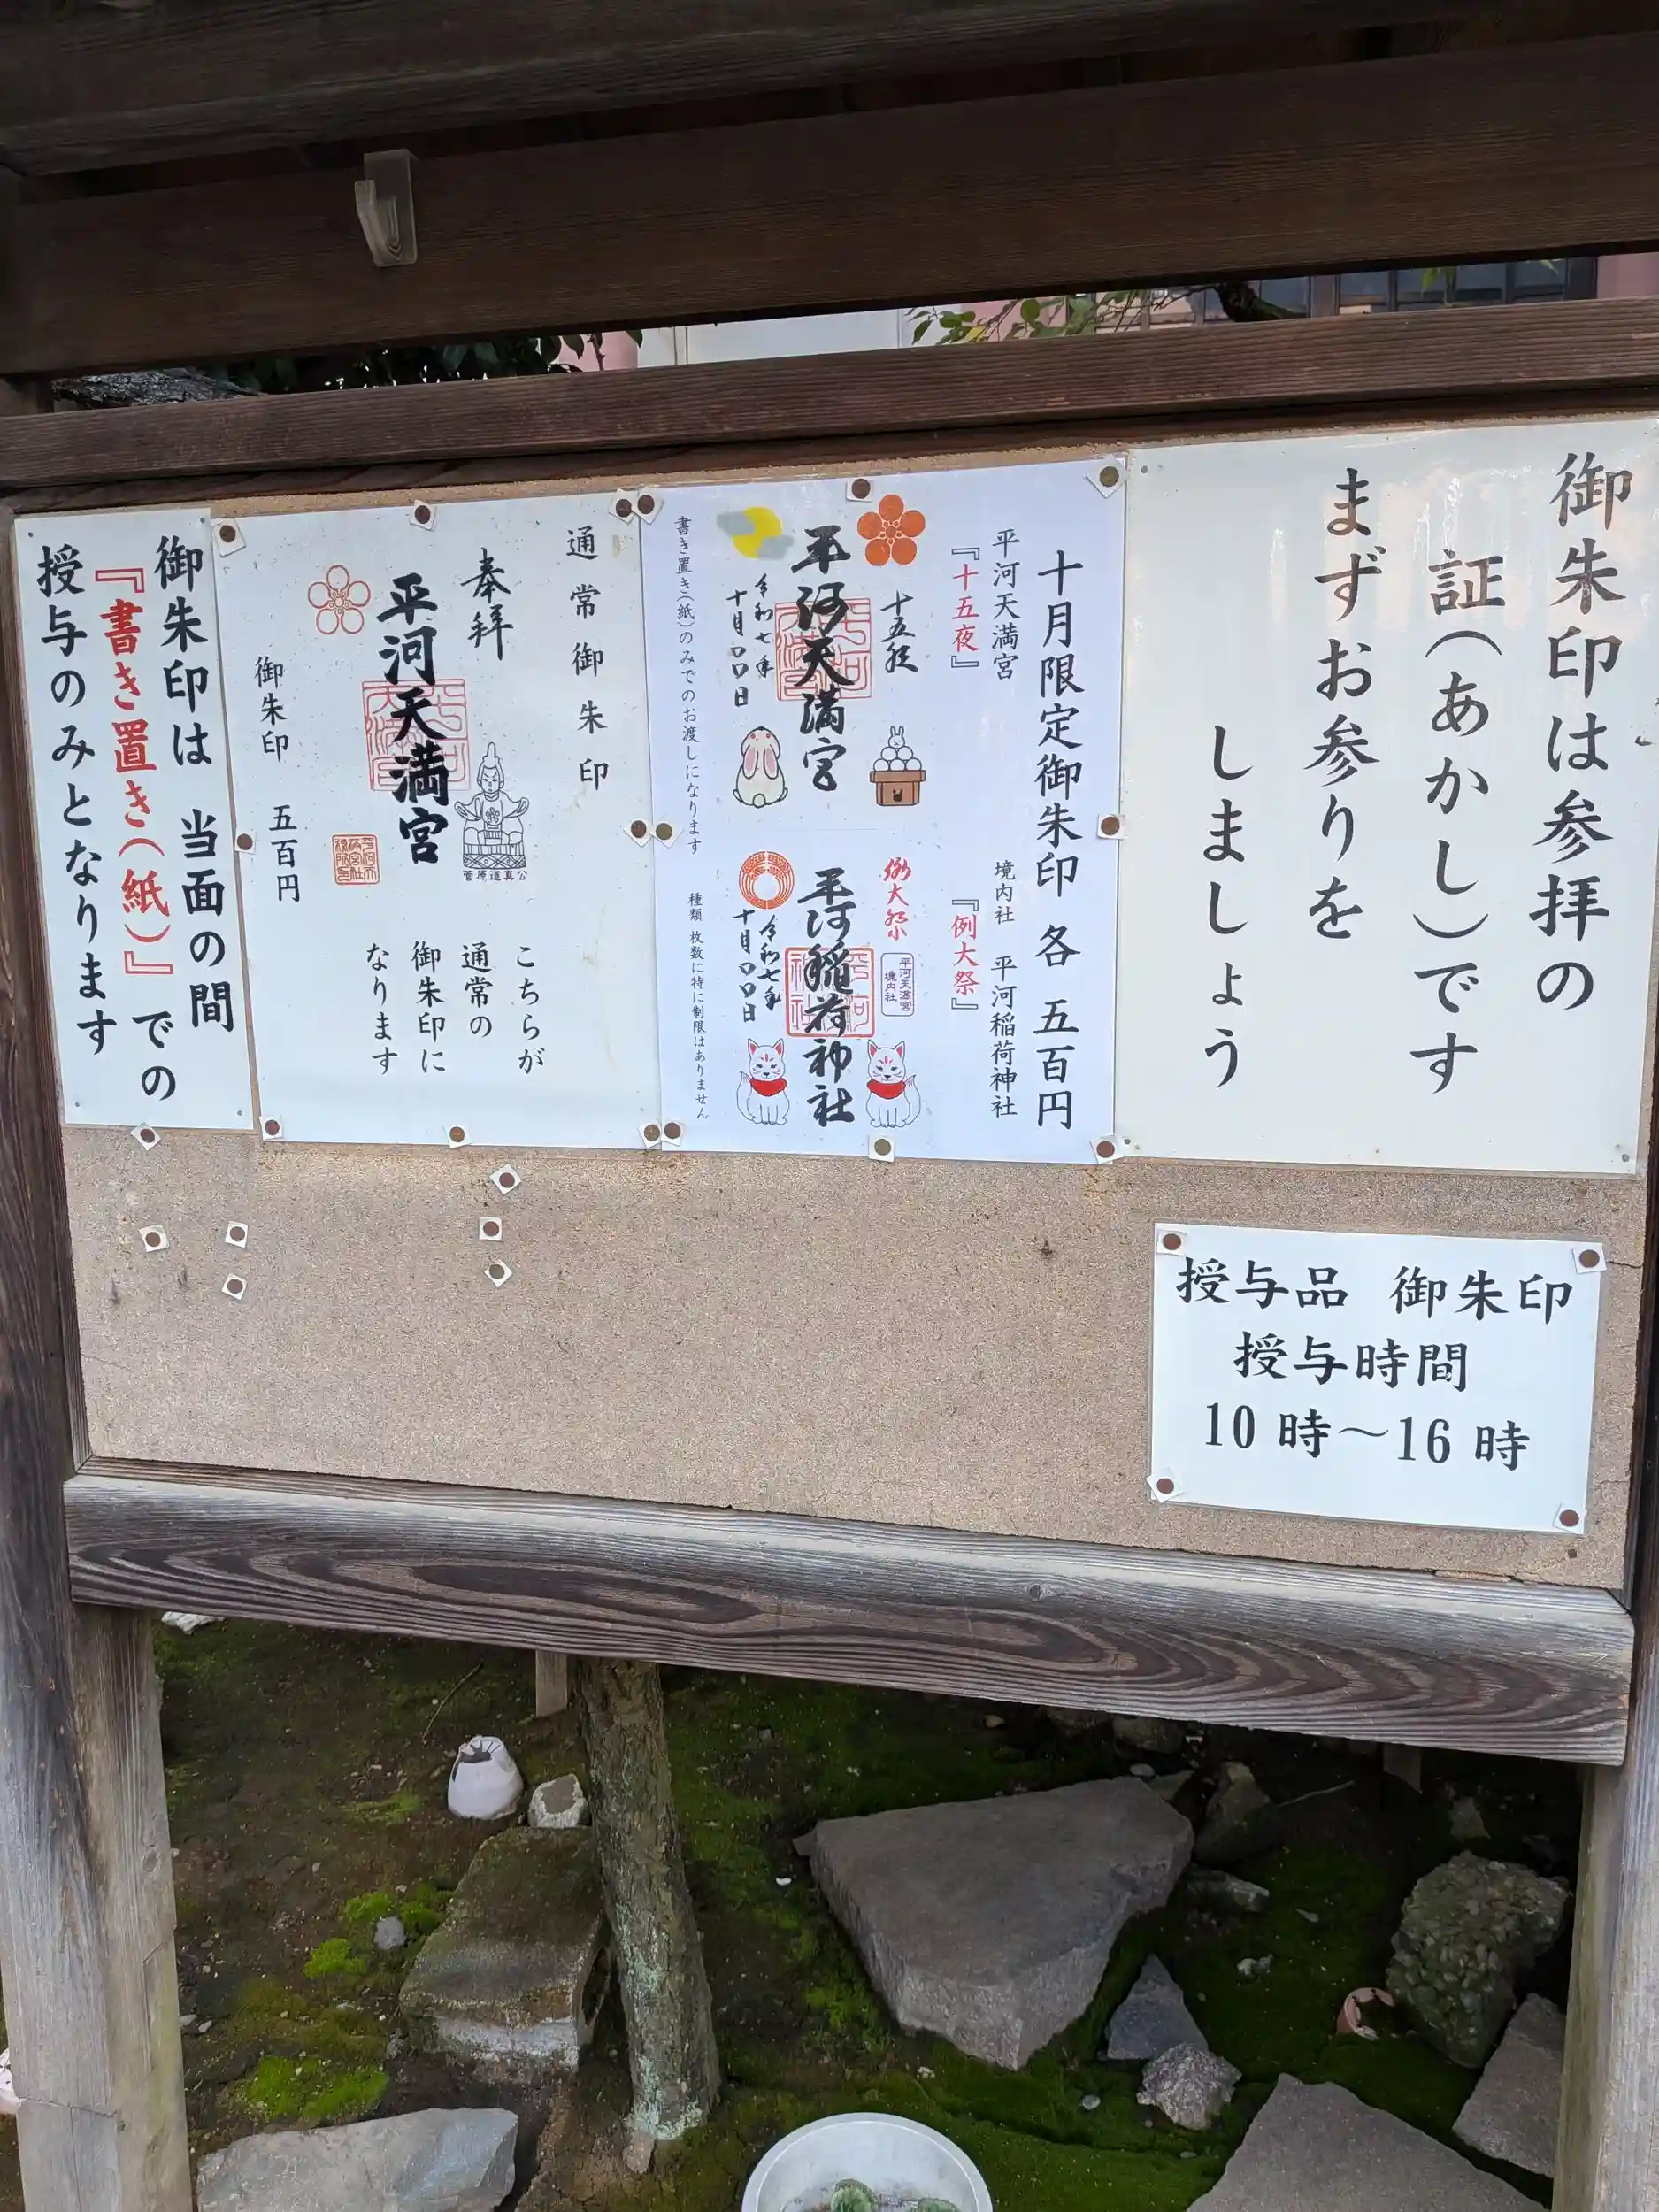 御朱印は参拝の
証(あかし)です
まずお参りを
しましょう
十月限定御朱印 各 五百円
平河天満宮
『十五夜』
境内社 平河稲荷神社
『例大祭』
十五夜
平河天満宮
令和七年
十月〇〇日
例大祭
平河天満宮
境内社
平河稲荷神社
令和七年
十月〇〇日
書き置き(紙)のみでのお渡しになります
種類 枚数に特に制限はありません
通常御朱印
奉拝
平河天満宮
菅原道真公
御朱印 五百円
こちらが
通常の
御朱印に
なります
御朱印は 当面の間
『書き置き(紙)』での
授与のみとなります
授与品 御朱印
授与時間
10時～16時